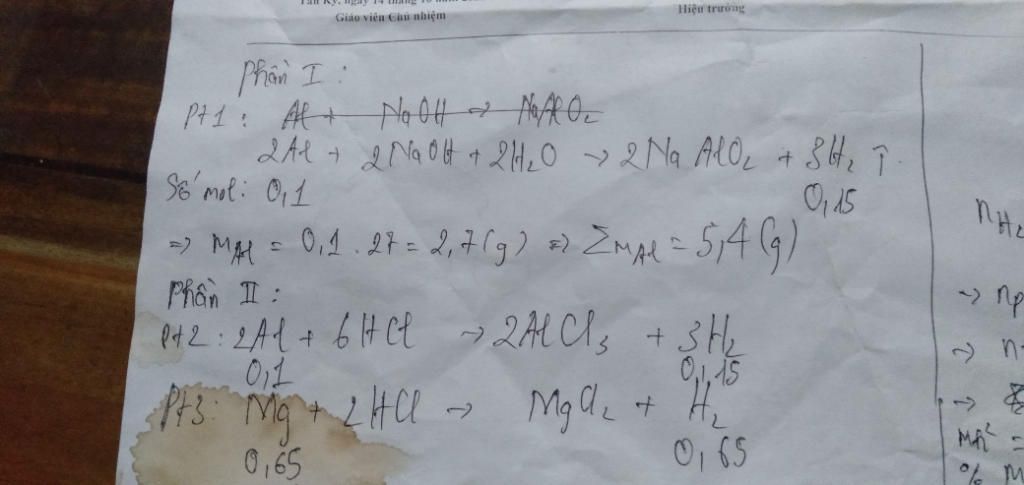 Giáo viên Chủ nhiệm
Hiệu trưởng
Phần I :
Pt1 : Al + NaOH → NaAlO₂
2Al + 2NaOH + 2H₂O → 2NaAlO₂ + 3H₂ ↑
Số mol: 0,1 0,15
=> mAl = 0,1 . 27 = 2,7(g) => ΣmAl = 5,4(g)
Phần II :
Pt2 : 2Al + 6HCl → 2AlCl₃ + 3H₂
0,1 0,15
Pt3: Mg + 2HCl → MgCl₂ + H₂
0,65 0,65
nH₂
→
→
→
=
%